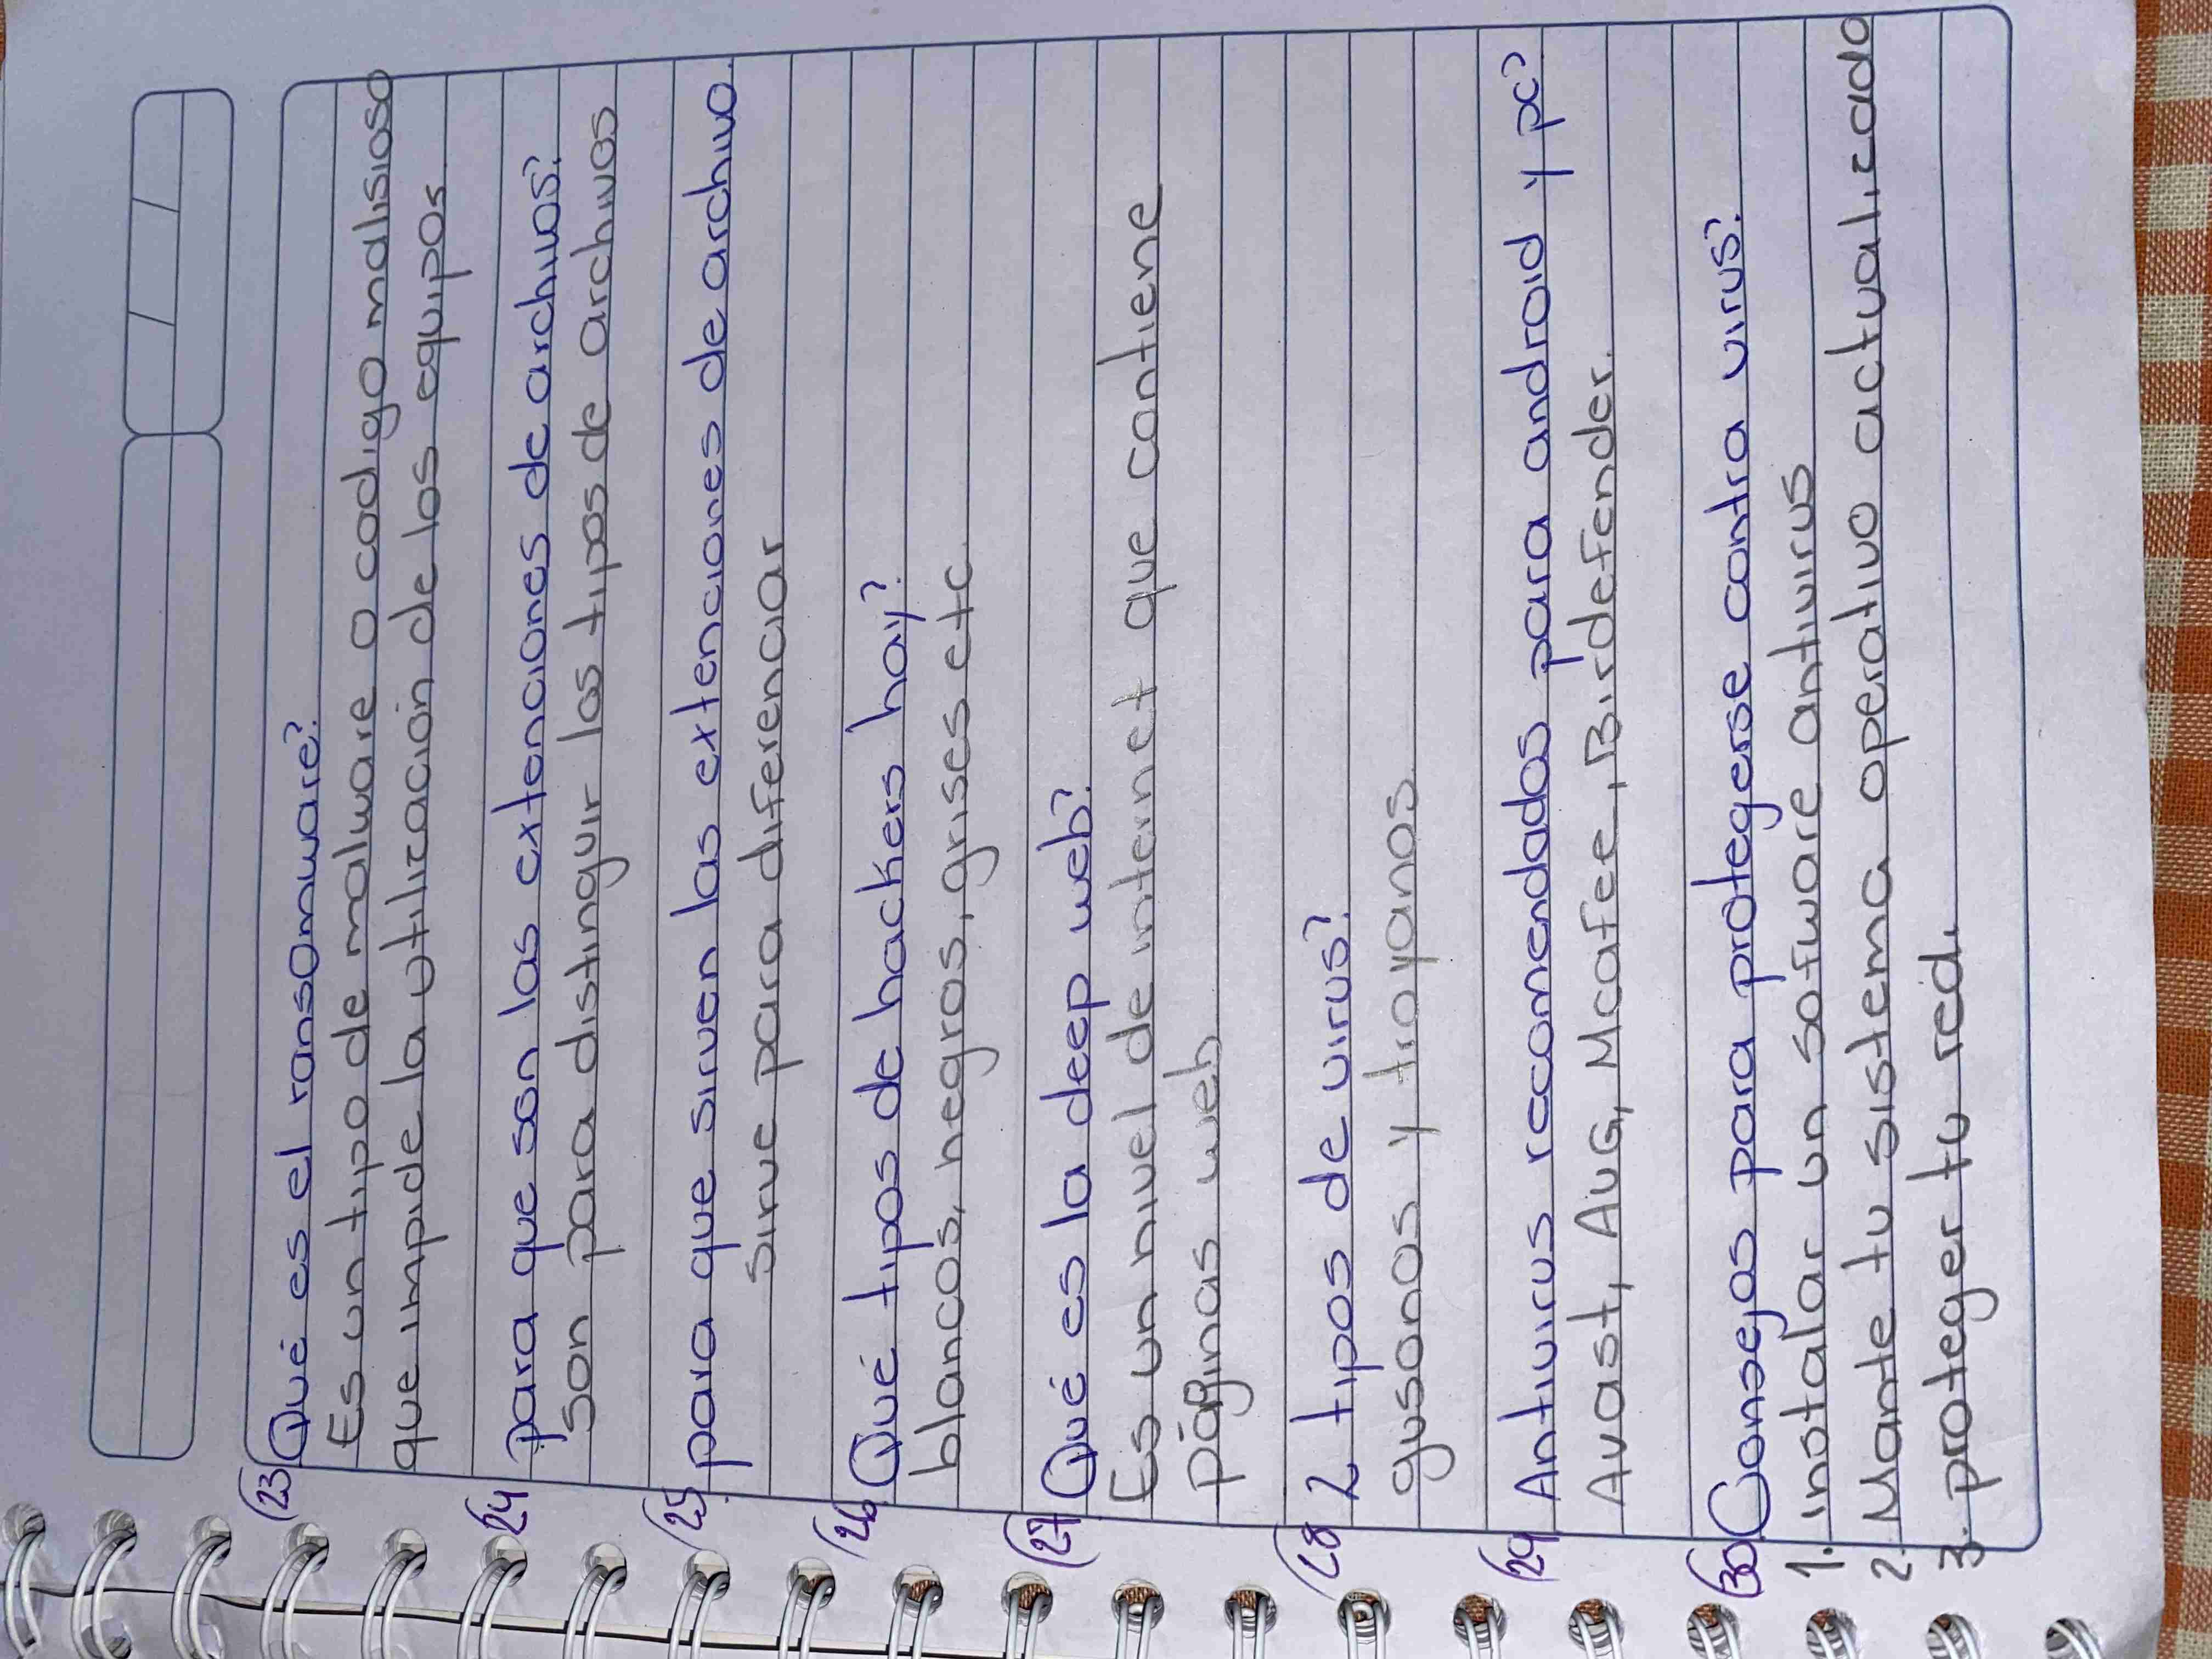 23 Qué es el ransomware?
Es un tipo de malware o codigo malisioso
que impide la utilicación de los equipos
24 para que son las extenciones de archivos?
son para distinguir los tipos de archivos
25 para que sirven las extenciones de archivo.
sirve para diferenciar
26 Qué tipos de hackers hay?
blancos, negros, grises etc
27 Qué es la deep web?
Es un nivel de internet que contiene
páginas web
28 2 tipos de virus?
gusonos y troyanos
29 Antivirus recomendados para android y pc?
Avast, AVG, Mcafee, Birdefender.
30 Consejos para protegerse contra virus?
1. instalar un sofware antivirus
2. Mante tu sistema operativo actualicado
3. proteger tu red.